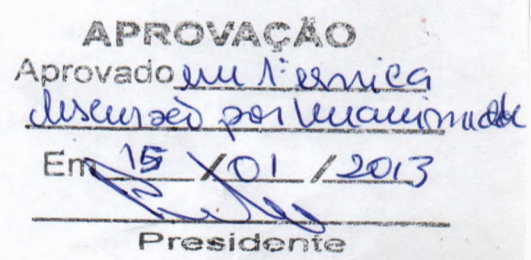 APROVAÇÃO
Aprovado em 1ª única
discursão por unanimidade
Em 15 / 01 / 2013
Presidente